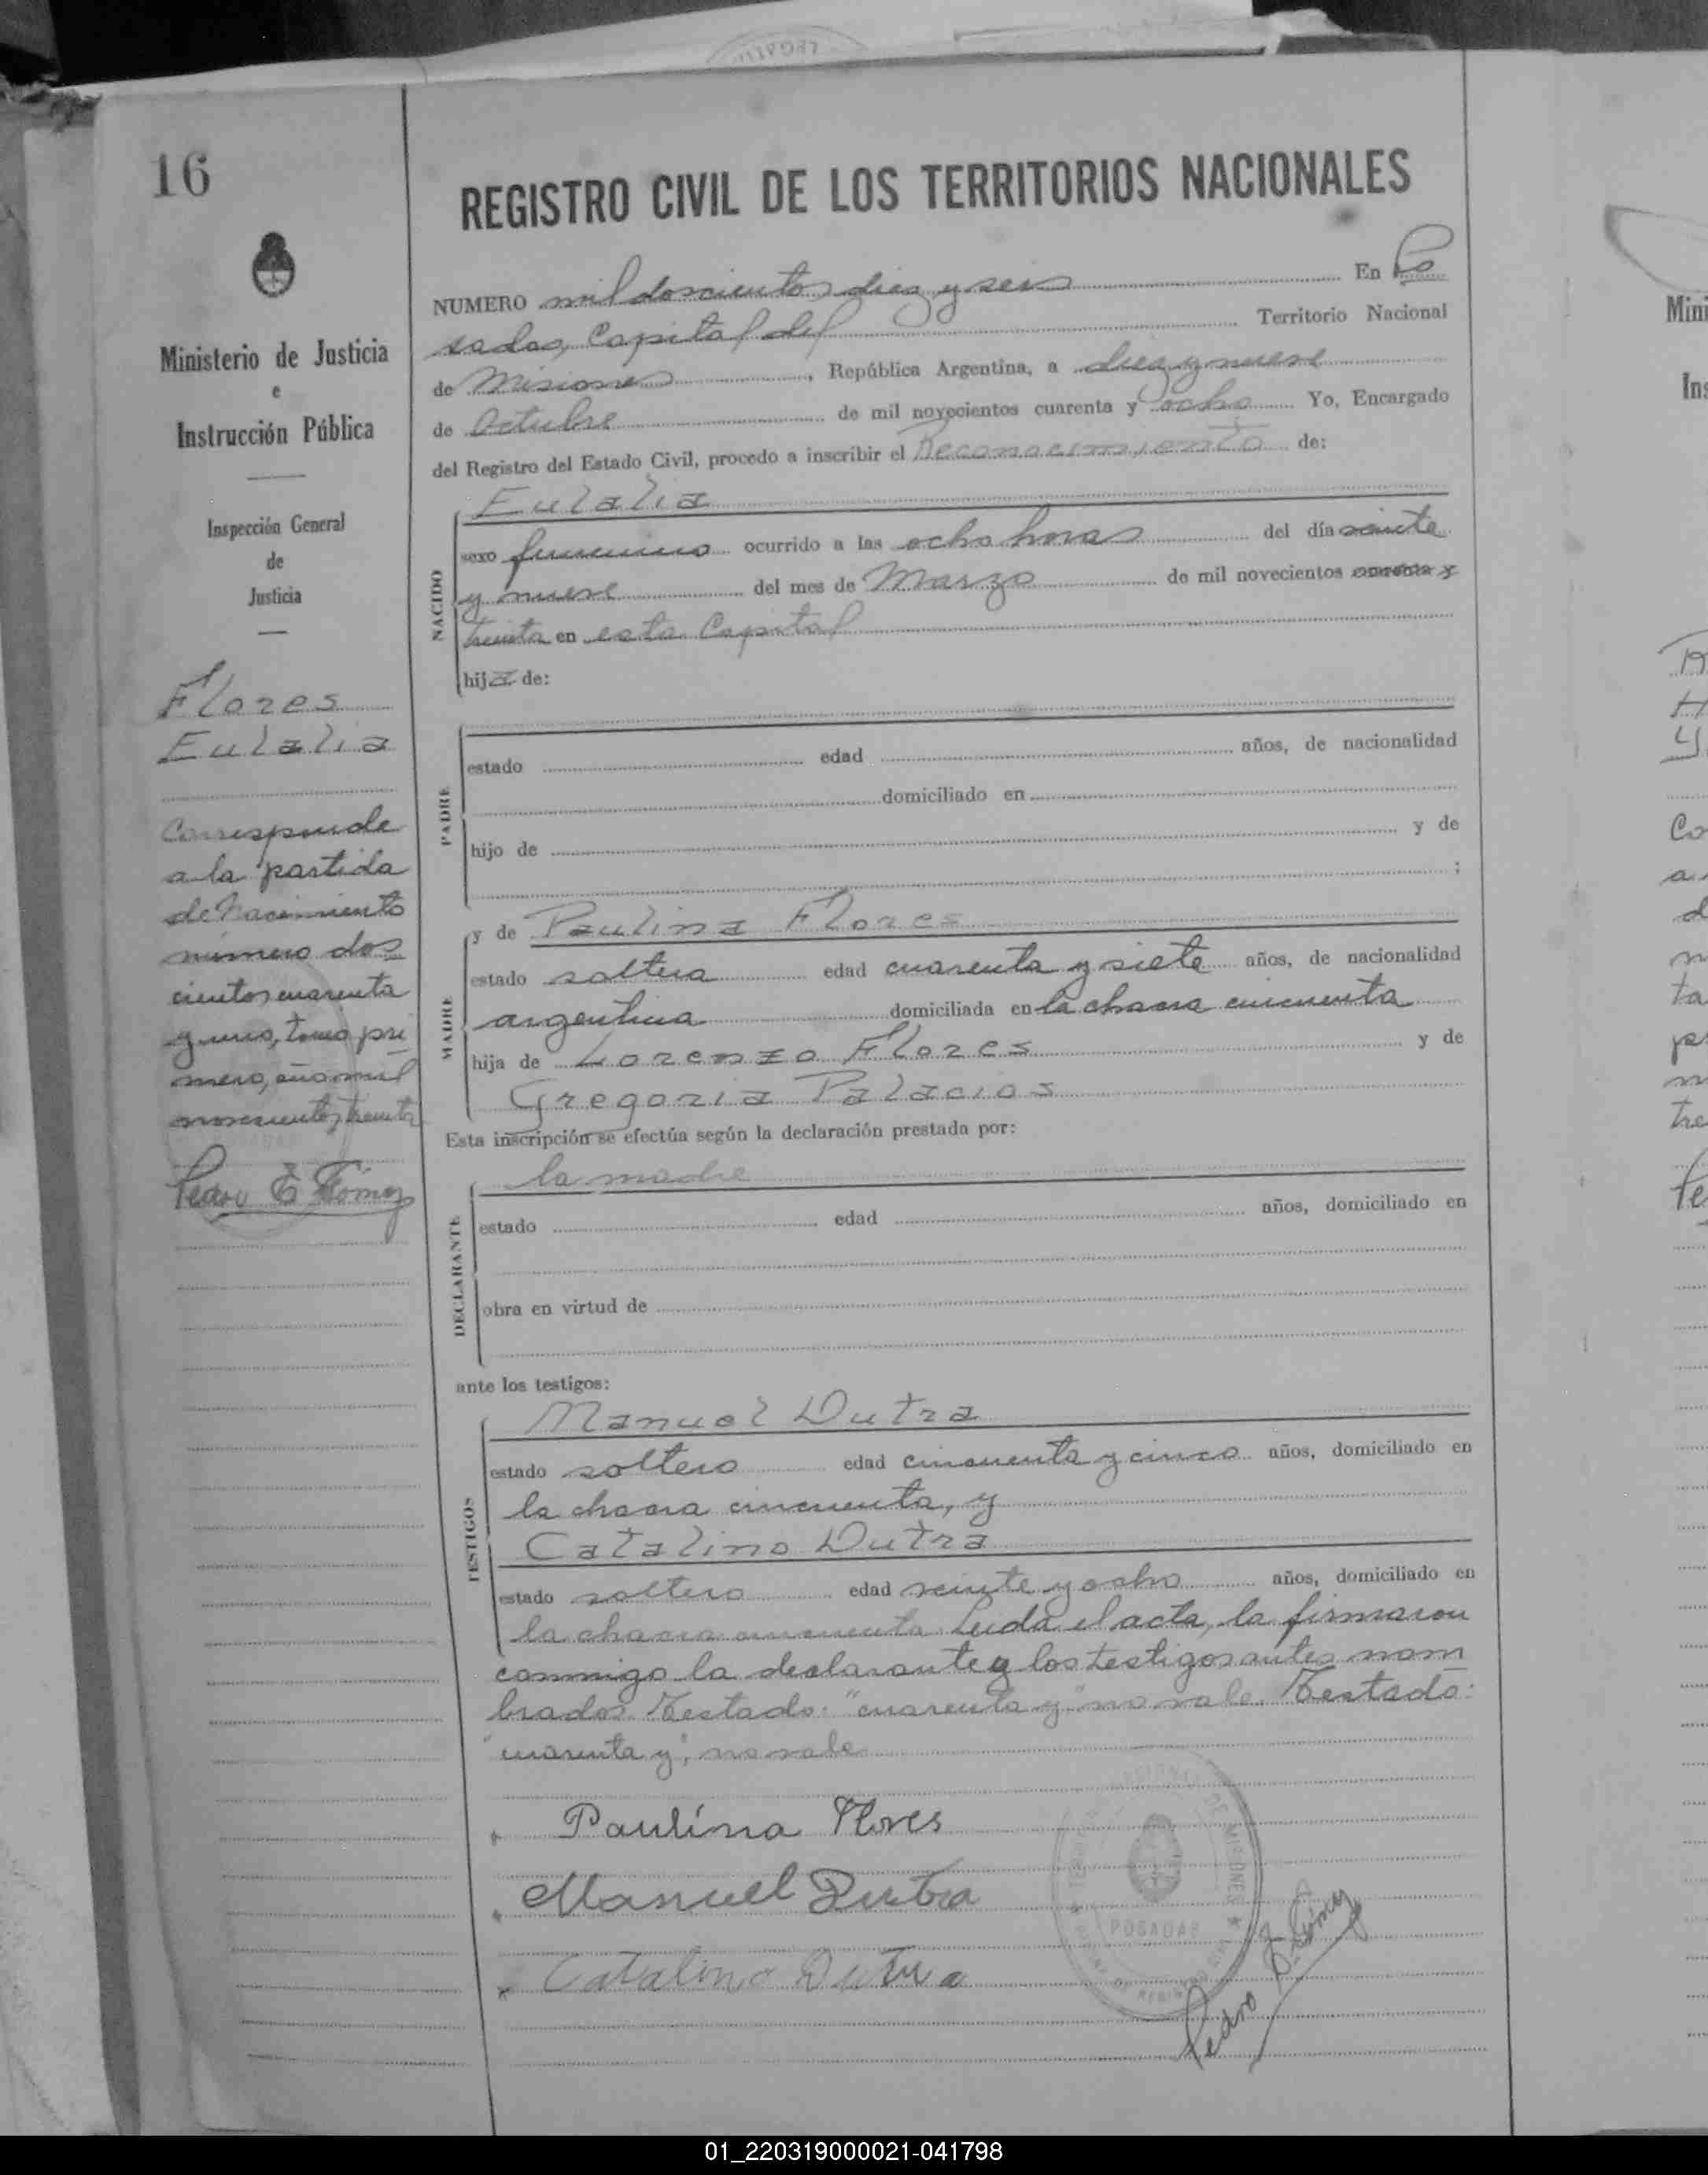 16
Ministerio de Justicia
e
Instrucción Pública
Inspección General
de
Justicia
Flores
Eulalia
Corresponde
a la partida
de Nacimiento
número dos
cientos cuarenta
y uno, tomo pri
mero, año mil
novecientos treinta
Pedro E Gómez
REGISTRO CIVIL DE LOS TERRITORIOS NACIONALES
NUMERO mil doscientos diez y seis En Po
sadas, Capital del Territorio Nacional
de Misiones, República Argentina, a diez y nueve
de Octubre de mil novecientos cuarenta y ocho Yo, Encargado
del Registro del Estado Civil, procedo a inscribir el Reconocimiento de:
Eulalia
NACIDO
sexo femenino ocurrido a las ocho horas del día veinte
y nueve del mes de Marzo de mil novecientos cuarenta y
treinta en esta Capital
hija de:
PADRE
estado edad años, de nacionalidad
domiciliado en
hijo de y de
;
y de Paulina Flores
MADRE
estado soltera edad cuarenta y siete años, de nacionalidad
argentina domiciliada en la chacra cincuenta
hija de Lorenzo Flores y de
Gregoria Palacios
Esta inscripción se efectúa según la declaración prestada por:
la madre
DECLARANTE
estado edad años, domiciliado en
obra en virtud de
ante los testigos:
Manuel Dutra
TESTIGOS
estado soltero edad cincuenta y cinco años, domiciliado en
la chacra cincuenta, y
Catalino Dutra
estado soltero edad veinte y ocho años, domiciliado en
la chacra cincuenta. Leída el acta, la firmaron
conmigo la declarante y los testigos antes nom
brados. Testado: "cuarenta y" no vale. Testado:
"cuarenta y", no vale
Paulina Flores
Manuel Dutra
Catalino Dutra
POSADAS
Pedro E. Gómez
01_220319000021-041798